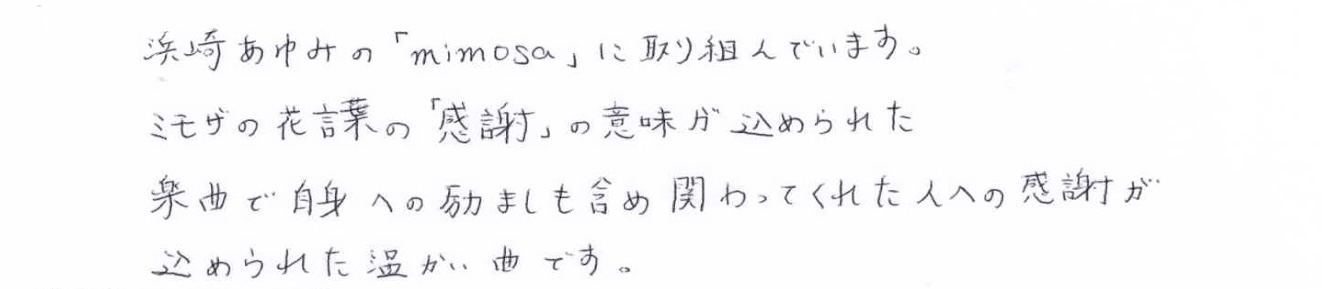 浜崎あゆみの「mimosa」に取り組んでいます。
ミモザの花言葉の「感謝」の意味が込められた
楽曲で自身への励ましも含め関わってくれた人への感謝が
込められた温かい曲です。